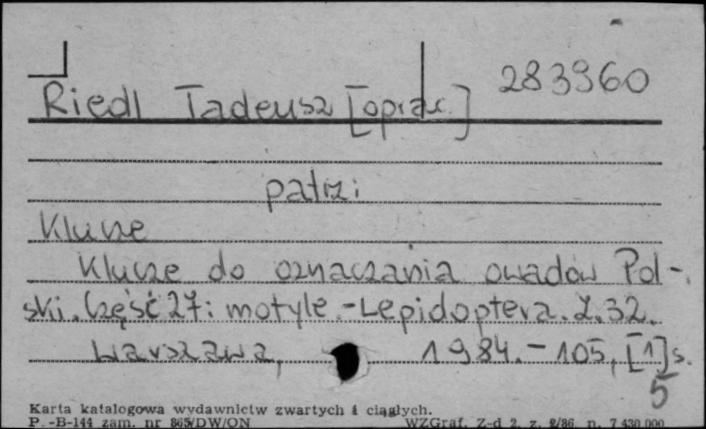 283960
Riedl Tadeusz [oprac.]
patrz:
Klucze
Klucze do oznaczania owadów Pol-
ski. Część 27: motyle.-Lepidoptera. Z. 32.
Warszawa, 1984.-105, [1] s.
5
Karta katalogowa wydawnictw zwartych i ciągłych.
P.-B-144 zam. nr 865/DW/ON WZGraf. Z-d 2, z. 2/86 n. 7 430 000